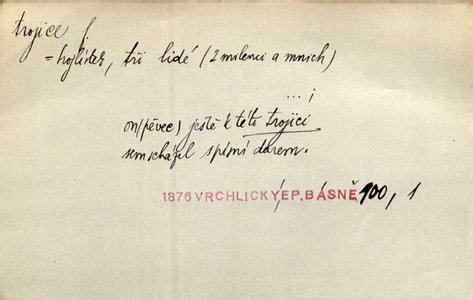 trojice f.
= trojlístek, tři lidé (2 milenci a mnich)
... ;
on (pěvec) ještě k této trojici
sem scházel s písní darem.
1876 VRCHLICKÝ, EP. BÁSNĚ 100, 1